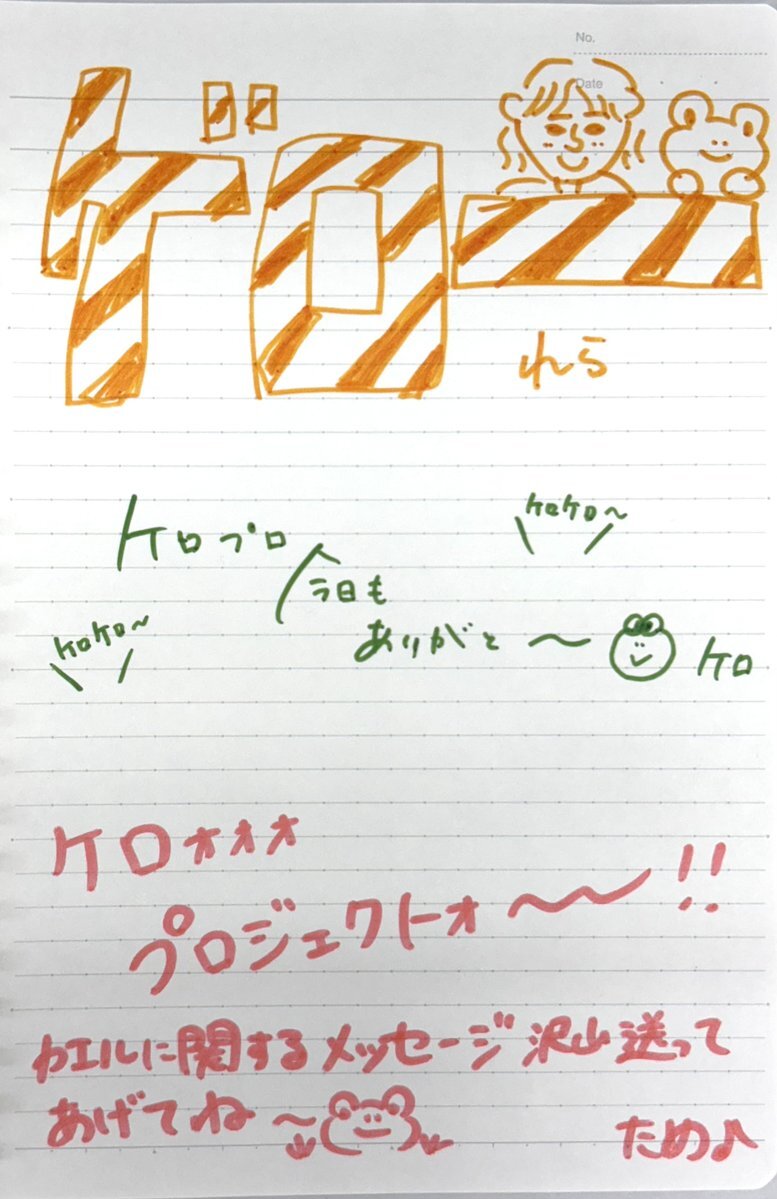 No.
Date
ゲロー
れら
ケロプロ
ケロケロ〜
今日も
ありがと〜 ケロ
ケロケロ〜
ケロォォォ
プロジェクトォ〜〜!!
カエルに関するメッセージ沢山送って
あげてね〜
ため♪